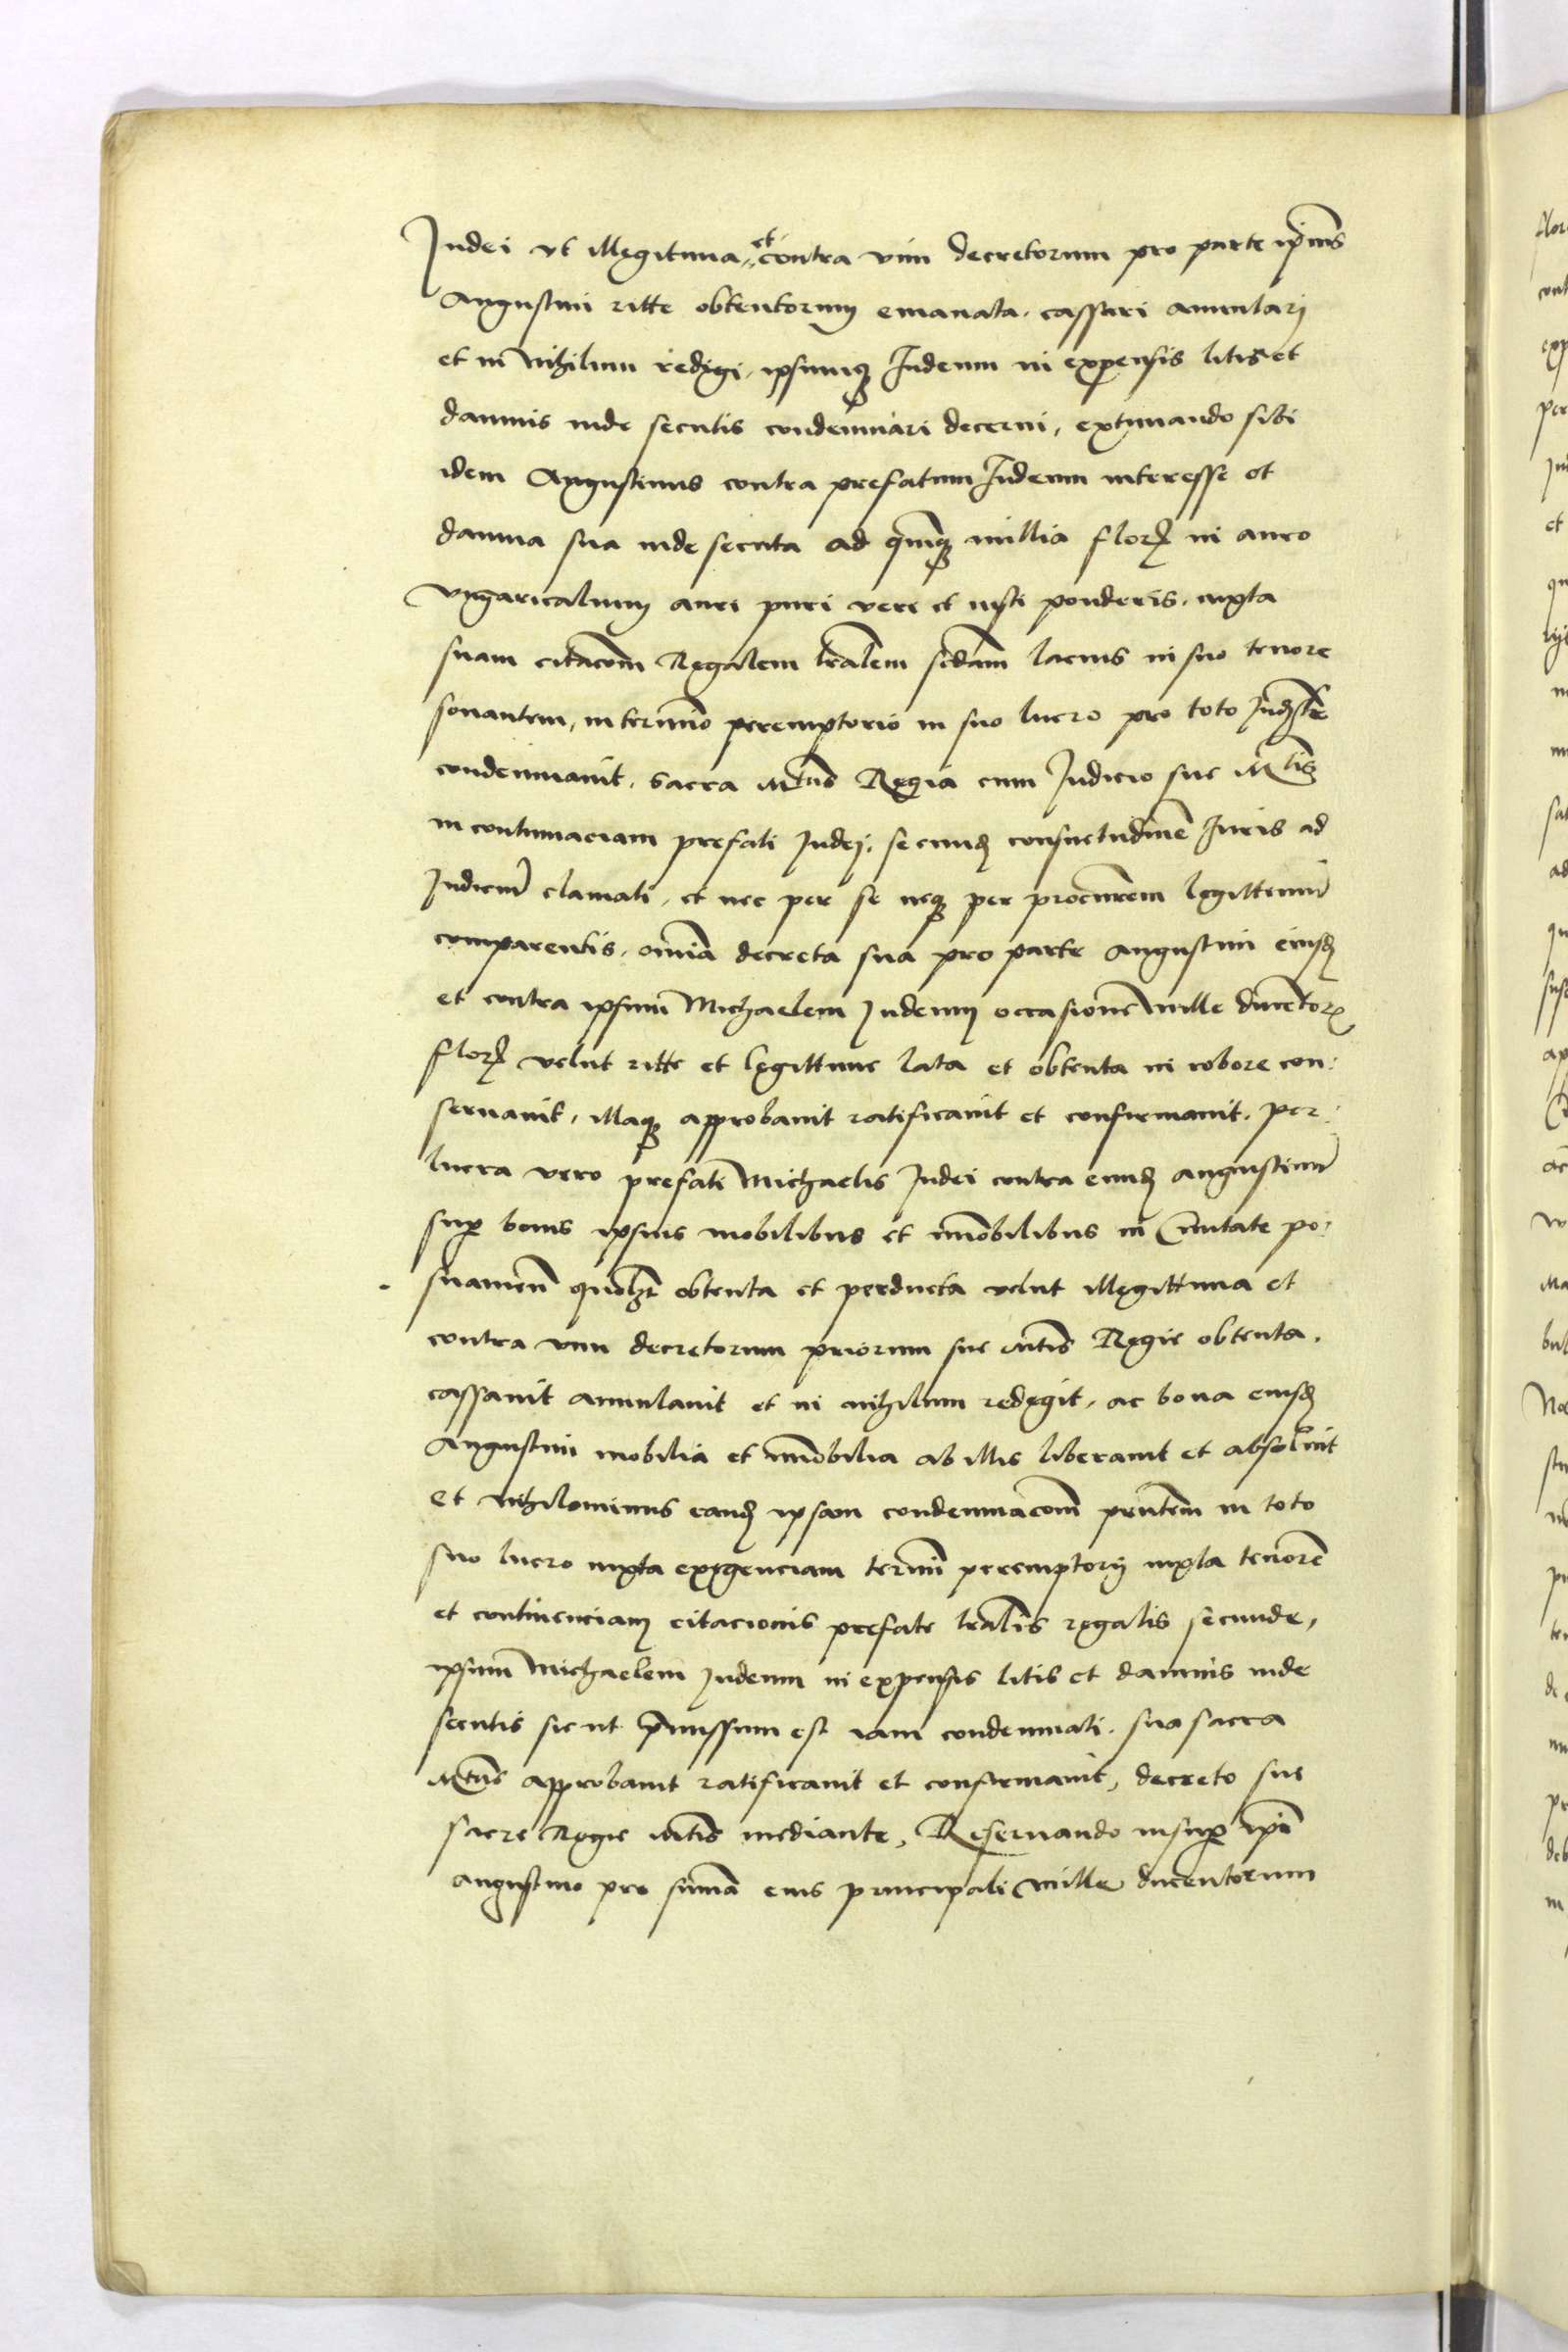 Judei vt illegitima et contra vim decretorum pro parte ip̄ius
Augustini ritte obtentorum emanata, cassari annulari
et in nihilum redigi, ipsumq Judeum in expensis litis et
damnis inde secutis condemnari decerni, extimando sibi
idem Augustinus contra prefatum Judeum interesse et
damna sua inde secuta ad quinq millia florꝝ in auro
vngaricalium auri puri veri et iusti ponderis, iuxta
suam citacōm Regalem lr̄alem scd̄am lacius in suo tenore
sonantem, in termino peremptorio in suo lucro pro toto
condemnauit, Sacra Mtās Regia cum Judicio sue Mtīs
in contumaciam prefati Judej, secund consuetudinē Juris ad
Judiciū clamati, et nec per se neq per procur̄em legittimū
comparentis, omīa decreta sua pro parte Augustini eiusd
et contra ipsum Michaelem Judeum occasione mille ducentorꝝ
florꝝ velut ritte et legittime lata et obtenta in robore con:
seruauit, illaq approbauit ratificauit et confirmauit. Per:
lucra vero prefati Michaelis Judei contra eund Augustinū
sup bonis ipsius mobilibus et immobilibus in Ciuitate po:
snanien̄ quol̄t obtenta et perducta velut illegittima et
contra vim decretorum priorum sue Mtīs Regie obtenta,
cassauit annulauit et in nihilum redegit, ac bona eiusd
Augustini mobilia et immobilia ab illis liberauit et absoluit
Et nihilominus eand ipsam condemnacōm pn̄tem in toto
suo lucro iuxta exigenciam termini peremptorij iuxta tenorē
et continenciam citacionis prefate lr̄alis regalis secunde,
ipsum Michaelem Judeum in expensis litis et damnis inde
secutis sicut p̄missum est iam condemnati. sua sacra
Mtās approbauit ratificauit et confirmauit, decreto sue
sacre Regie Mtīs mediante, Reseruando insup ip̄i
Augustino pro summa eius principali mille ducentorum